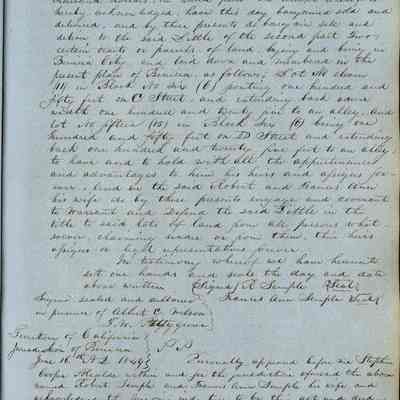 hereby acknowledged, have this day bargained sold and
delivered, and by these presents do bargain sell and
deliver to the said Little of the second part two
certain units or parcels of land, lying and being in
Benicia City and laid down and numbered in the
present plan of Benicia, as follows, Lot No eleven
(11) in Block No six (6) fronting one hundred and
fifty feet on C Street, and extending back same
width one hundred and twenty five feet to an alley, and
lot No fifteen (15) in Block Six (6) being one
hundred and fifty feet on D Street and extending
back one hundred and twenty five feet to an alley
to have and to hold with all the appurtenances
and advantages to him his heirs and assigns for-
ever. And the said Robert and Francis Ann
his wife do by these presents engage and covenant
to warrant and defend the said Little in the
title to said lots of land from all persons what-
soever, claiming under or from them, their heirs
assigns or legal representatives forever
In testimony whereof we have hereunto
set our hands and seals the day and date
above written (Signed) R. Semple (Seal)
Signed sealed and delivered Francis Ann Semple (Seal)
in presence of Albert C. Wilson
Territory of California
Jurisdiction of Benicia
16th A.D. 1849 Personally appeared before me Stephen
Cooper Alcalde within and for the jurisdiction aforesaid the above
named Robert Semple and Francis Ann Semple his wife and
acknowledged the foregoing to be their act and deed